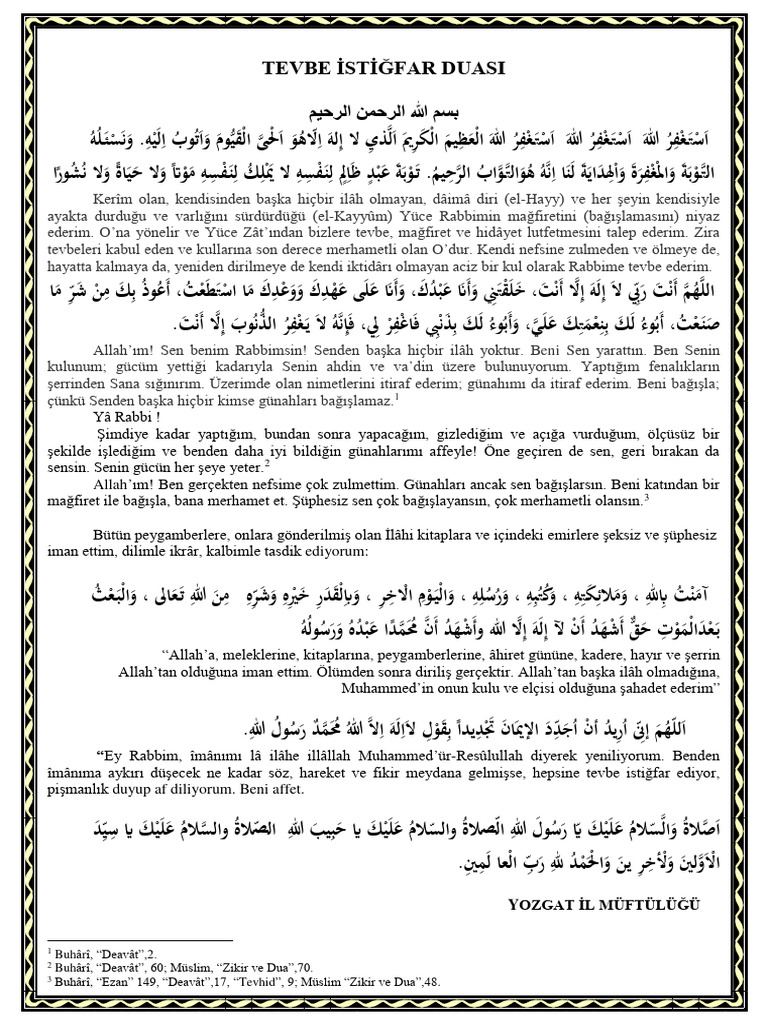 TEVBE İSTİĞFAR DUASI
بسم الله الرحمن الرحيم
اَسْتَغْفِرُ اللهَ اَسْتَغْفِرُ اللهَ اَسْتَغْفِرُ اللهَ الْعَظِيمَ الْكَرِيمَ اَلَّذِي لا إِلهَ اِلاّهُوَ اَلْحَيَّ الْقَيُّومَ وَاَتُوبُ اِلَيْهِ. وَنَسْئَلُهُ
التَّوْبَةَ وَالْمَغْفِرَةَ وَاْلهِدَايَةَ لَنَا اِنَّهُ هُوَالتَّوَّابُ الرَّحِيمُ. تَوْبَةَ عَبْدٍ ظَالِمٍ لِنَفْسِهِ لا يَمْلِكُ لِنَفْسِهِ مَوْتاً وَلا حَيَاةً وَلا نُشُورًا
Kerîm olan, kendisinden başka hiçbir ilâh olmayan, dâimâ diri (el-Hayy) ve her şeyin kendisiyle
ayakta durduğu ve varlığını sürdürdüğü (el-Kayyûm) Yüce Rabbimin mağfiretini (bağışlamasını) niyaz
ederim. O’na yönelir ve Yüce Zât’ından bizlere tevbe, mağfiret ve hidâyet lutfetmesini talep ederim. Zira
tevbeleri kabul eden ve kullarına son derece merhametli olan O’dur. Kendi nefsine zulmeden ve ölmeye de,
hayatta kalmaya da, yeniden dirilmeye de kendi iktidârı olmayan aciz bir kul olarak Rabbime tevbe ederim.
اللَّهُمَّ أَنْتَ رَبِّي لاَ إِلَهَ إِلَّا أَنْتَ، خَلَقْتَنِي وَأَنَا عَبْدُكَ، وَأَنَا عَلَى عَهْدِكَ وَوَعْدِكَ مَا اسْتَطَعْتُ، أَعُوذُ بِكَ مِنْ شَرِّ مَا
صَنَعْتُ، أَبُوءُ لَكَ بِنِعْمَتِكَ عَلَيَّ، وَأَبُوءُ لَكَ بِذَنْبِي فَاغْفِرْ لِي، فَإِنَّهُ لاَ يَغْفِرُ الذُّنُوبَ إِلَّا أَنْتَ.
Allah’ım! Sen benim Rabbimsin! Senden başka hiçbir ilâh yoktur. Beni Sen yarattın. Ben Senin
kulunum; gücüm yettiği kadarıyla Senin ahdin ve va’din üzere bulunuyorum. Yaptığım fenalıkların
şerrinden Sana sığınırım. Üzerimde olan nimetlerini itiraf ederim; günahımı da itiraf ederim. Beni bağışla;
çünkü Senden başka hiçbir kimse günahları bağışlamaz.1
Yâ Rabbi !
Şimdiye kadar yaptığım, bundan sonra yapacağım, gizlediğim ve açığa vurduğum, ölçüsüz bir
şekilde işlediğim ve benden daha iyi bildiğin günahlarımı affeyle! Öne geçiren de sen, geri bırakan da
sensin. Senin gücün her şeye yeter.2
Allah’ım! Ben gerçekten nefsime çok zulmettim. Günahları ancak sen bağışlarsın. Beni katından bir
mağfiret ile bağışla, bana merhamet et. Şüphesiz sen çok bağışlayansın, çok merhametli olansın.3
Bütün peygamberlere, onlara gönderilmiş olan İlâhi kitaplara ve içindeki emirlere şeksiz ve şüphesiz
iman ettim, dilimle ikrâr, kalbimle tasdik ediyorum:
آمَنْتُ بِاللهِ ، وَمَلائِكَتِهِ ، وَكُتُبِهِ ، وَرُسُلِهِ ، وَالْيَوْمِ الْاخِرِ ، وَبِالْقَدَرِ خَيْرِهِ وَشَرِّهِ مِنَ اللهِ تَعَالى ، وَالْبَعْثُ
بَعْدَالْمَوْتِ حَقٌّ أَشْهَدُ أَنْ لآ إِلَهَ إِلَّا الله وأَشْهَدُ أَنَّ مُحَمَّدًا عَبْدُهُ وَرَسُولُهُ
“Allah’a, meleklerine, kitaplarına, peygamberlerine, âhiret gününe, kadere, hayır ve şerrin
Allah’tan olduğuna iman ettim. Ölümden sonra diriliş gerçektir. Allah’tan başka ilâh olmadığına,
Muhammed’in onun kulu ve elçisi olduğuna şahadet ederim”
اَللّهُمَّ إنِّي اُرِيدُ أنْ اُجَدِّدَ الإيمَانَ تَجْدِيداً بِقَوْلِ لاَاِلَهَ اِلاَّ اللهُ مُحَمَّدٌ رَسُولُ اللهِ.
“Ey Rabbim, îmânımı lâ ilâhe illâllah Muhammed’ür-Resûlullah diyerek yeniliyorum. Benden
îmânıma aykırı düşecek ne kadar söz, hareket ve fikir meydana gelmişse, hepsine tevbe istiğfar ediyor,
pişmanlık duyup af diliyorum. Beni affet.
اَصَّلاةُ وَالَّسّلامُ عَلَيْكَ يَا رَسُولَ اللهِ الصّلاةُ والسّلامُ عَلَيْكَ يا حَبِيبَ اللهِ الصّلاةُ والسَّلامُ عَلَيْكَ يا سِيِّدَ
الْاَوَّلِينَ وَلْأخِرِ ينَ وَالْحَمْدُ للهِ رَبِّ الْعا لَمِينِ.
YOZGAT İL MÜFTÜLÜĞÜ
1 Buhârî, “Deavât”,2.
2 Buhârî, “Deavât”, 60; Müslim, “Zikir ve Dua”,70.
3 Buhârî, “Ezan” 149, “Deavât”,17, “Tevhid”, 9; Müslim “Zikir ve Dua”,48.